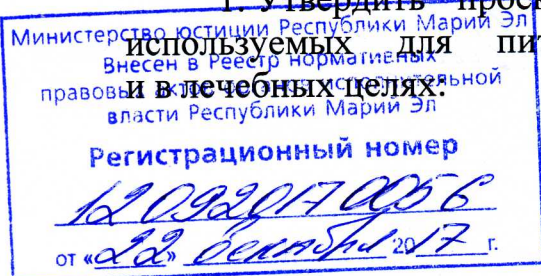 1. Утвердить
используемых для
и в лечебных целях:
Министерство юстиции Республики Марий Эл
Внесен в Реестр нормативных
правовых актов органов исполнительной
власти Республики Марий Эл
Регистрационный номер
120920170056
от «22» декабря 2017 г.